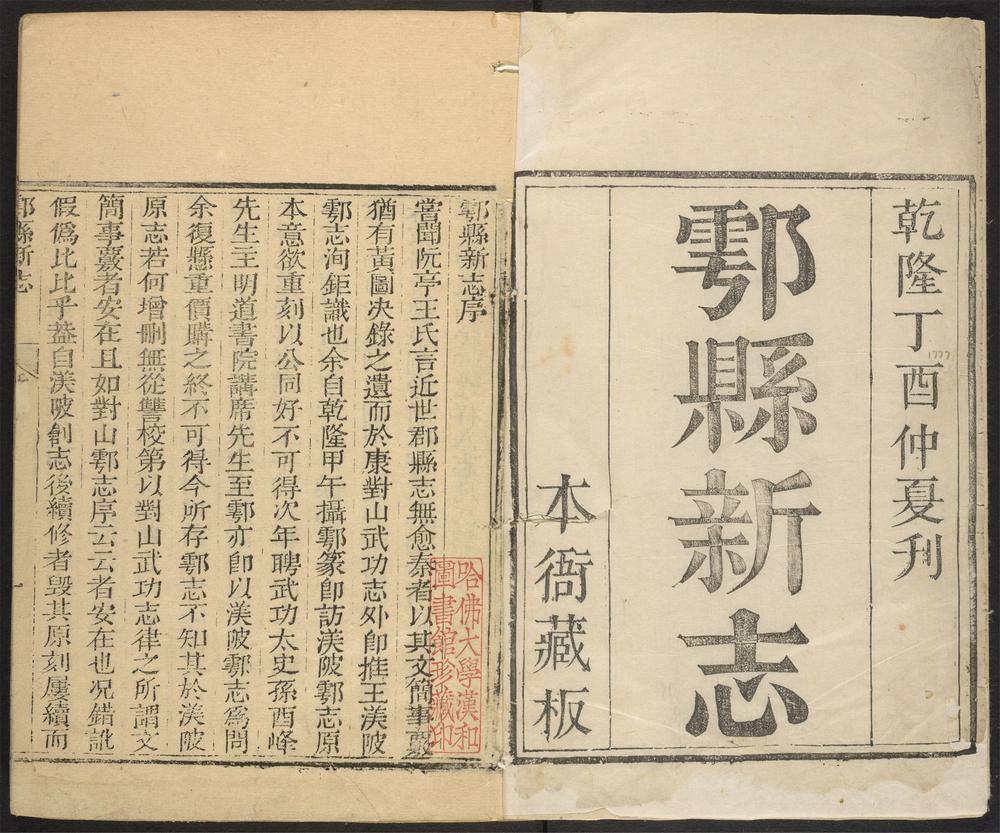 乾隆丁酉仲夏刋
1777
鄠縣新志
本衙藏板
鄠縣新志序
嘗聞阮亭王氏言近世郡縣志無愈秦者以其文簡事覈
猶有黃圖决錄之遺而於康對山武功志外卽推王渼陂
鄠志洵鉅識也余自乾隆甲午攝鄠篆卽訪渼陂鄠志原
本意欲重刻以公同好不可得次年聘武功太史孫酉峰
先生主明道書院講席先生至鄠亦卽以渼陂鄠志爲問
余復懸重價購之終不可得今所存鄠志不知其於渼陂
原志若何增刪無從讐校第以對山武功志律之所謂文
簡事覈者安在且如對山鄠志序云云者安在也况錯訛
假僞比比乎葢自渼陂創志後續修者毁其原刻屢續而
鄠縣新志
哈佛大學漢和
圖書館珍藏印